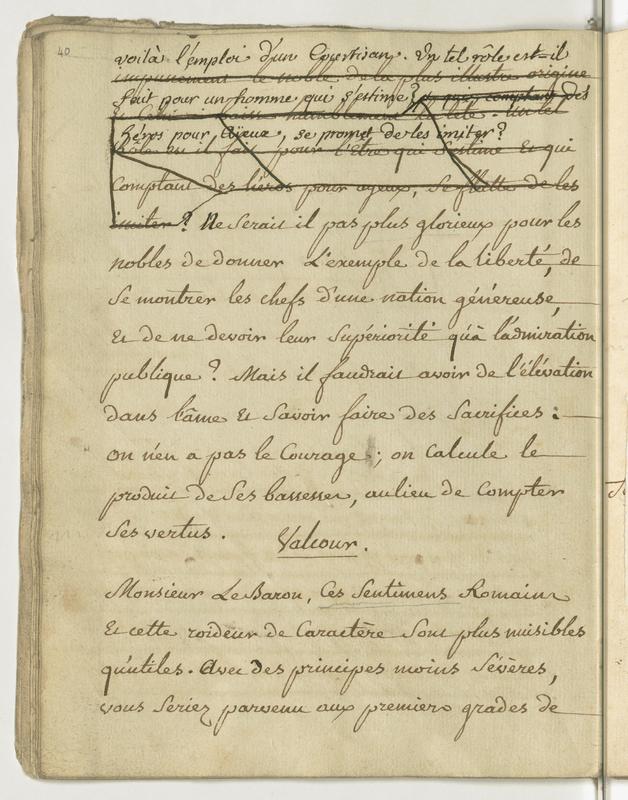 40
voilà l'emploi d'un Courtisan. Un tel rôle est-il
impunément le noble de la plus illustre origine
fait pour un homme qui s'estime? et qui, comptant des
héros pour ayeux, se promet de les imiter?
rôle est il fait pour l'Etre qui s'estime Et qui
comptant des héros pour ayeux, se flatte de les
imiter? Ne serait il pas plus glorieux pour les
nobles de donner L'exemple de la liberté, de
se montrer les chefs d'une nation généreuse
Et de ne devoir leur supériorité qu'à l'admiration
publique? Mais il faudrait avoir de l'élévation
dans l'âme Et savoir faire des sacrifices:
on n'en a pas le Courage; on calcule le
produit de ses bassesses, aulieu de compter
ses vertus.
Valcour.
Monsieur Le Baron, Ces sentimens Romains
Et cette roideur de Caractère sont plus nuisibles
qu'utiles. Avec des principes moins sévères,
vous seriez parvenu aux premiers grades de